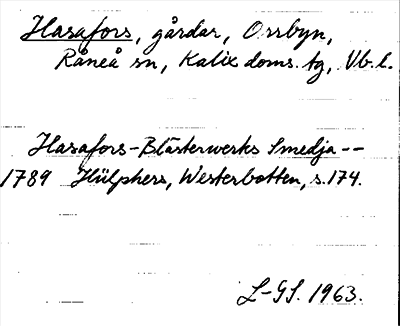 Hasafors, gårdar, Orrbyn,
Råneå sn, Kalix doms. tg, Vb. l.
Hasafors-Blästerwerks Smedja --
1789 Hülphers, Westerbotten, s. 174.
L-GS. 1963.